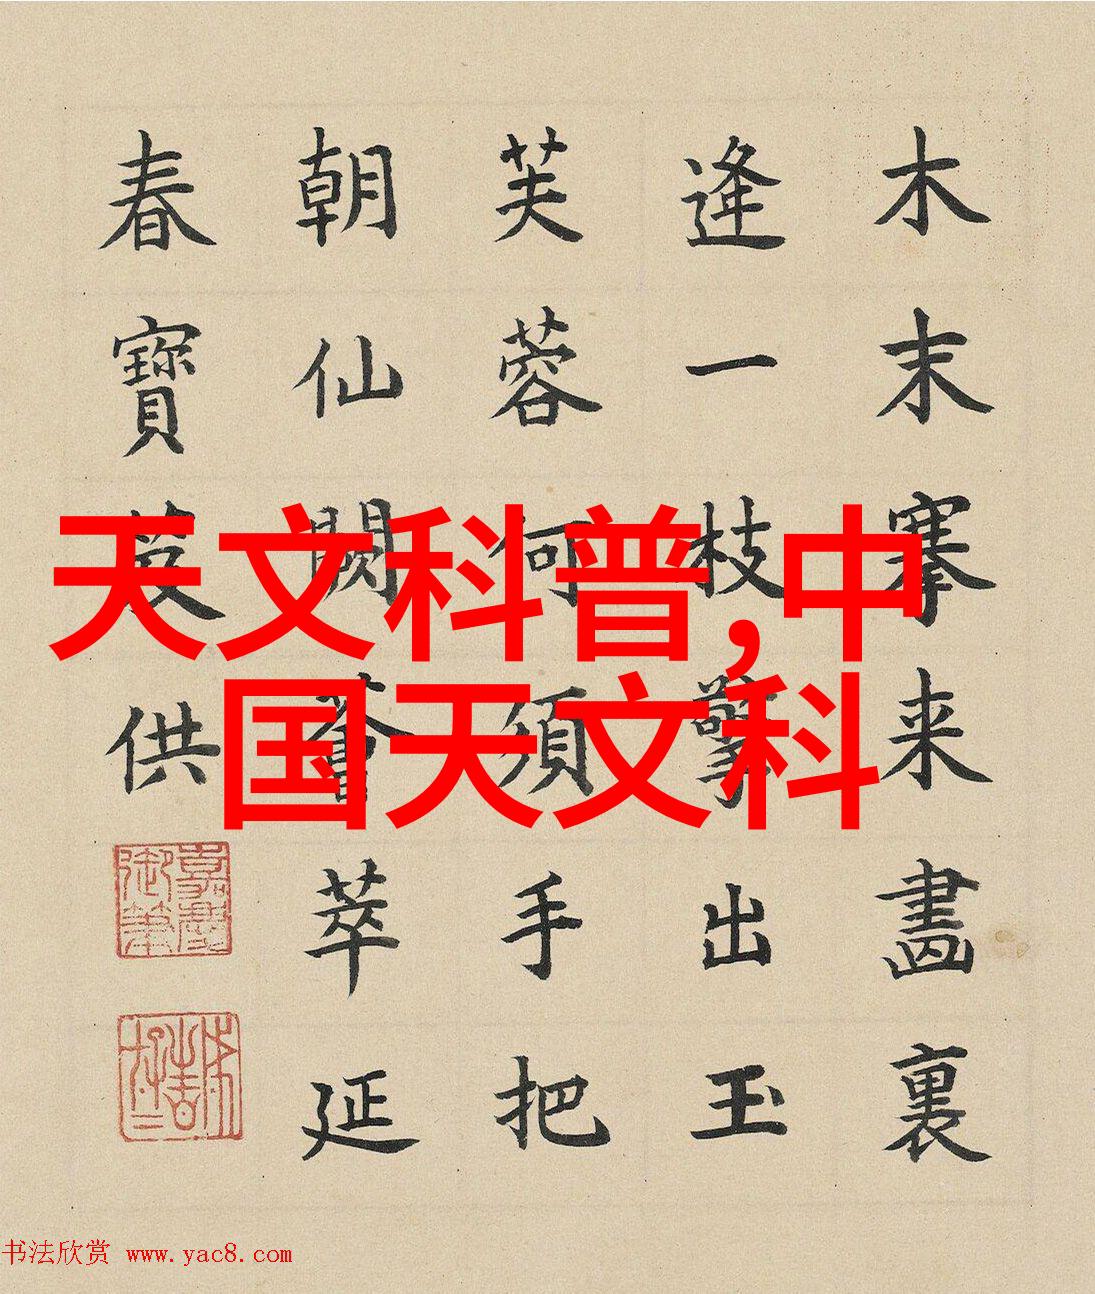 木末搴来畫裏
逢一枝擎出玉
芙蓉何須手把
朝仙闕薈萃延
春寶供
嘉慶御筆
天文科普,中
国天文科
书法欣赏 www.yac8.com